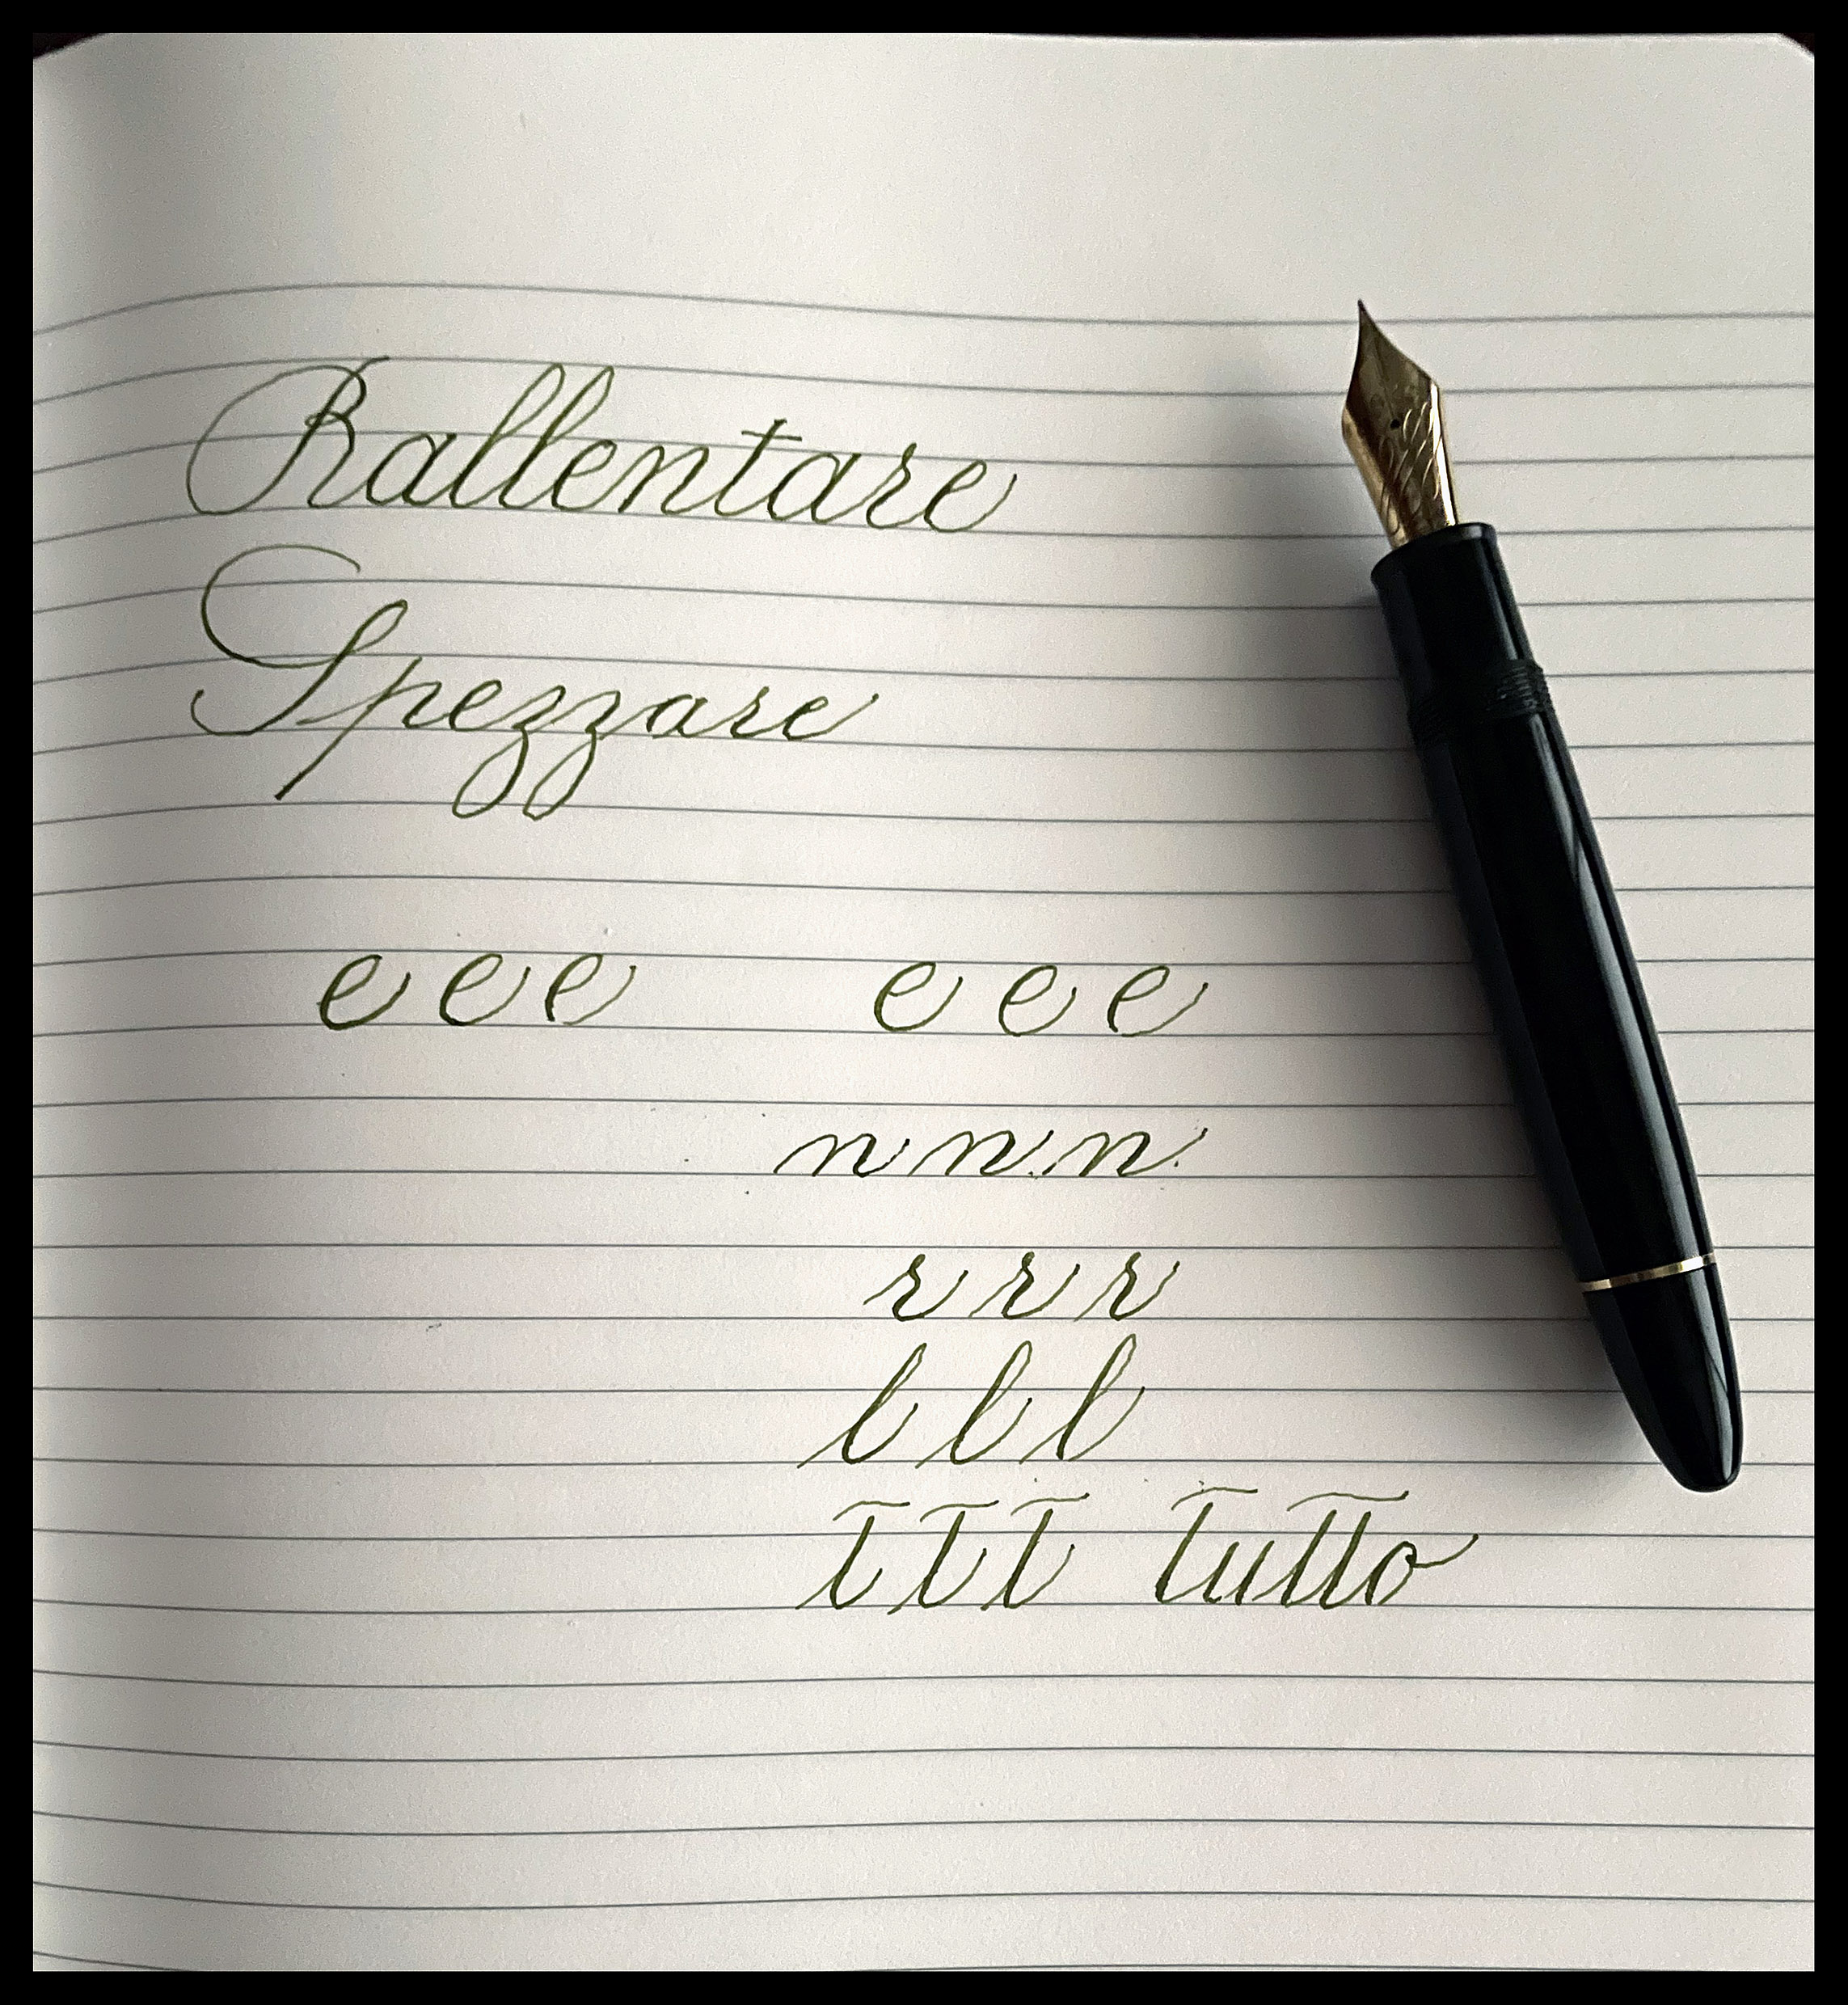 Rallentare
Spezzare
e e e e e e
n n n
r r r
l l l
t t t tutto